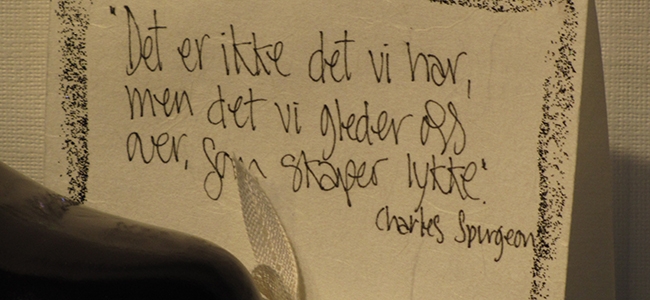 "Det er ikke det vi har,
men det vi gleder oss
over, som skaper lykke".
Charles Spurgeon